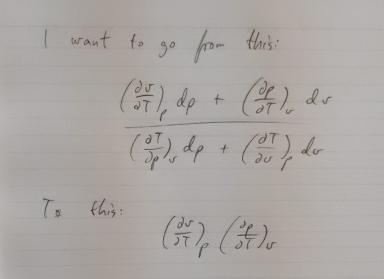 I want to go from this:
(∂v/∂T)_p dp + (∂p/∂T)_v dv
(∂T/∂p)_v dp + (∂T/∂v)_p dv
To this:
(∂v/∂T)_p (∂p/∂T)_v